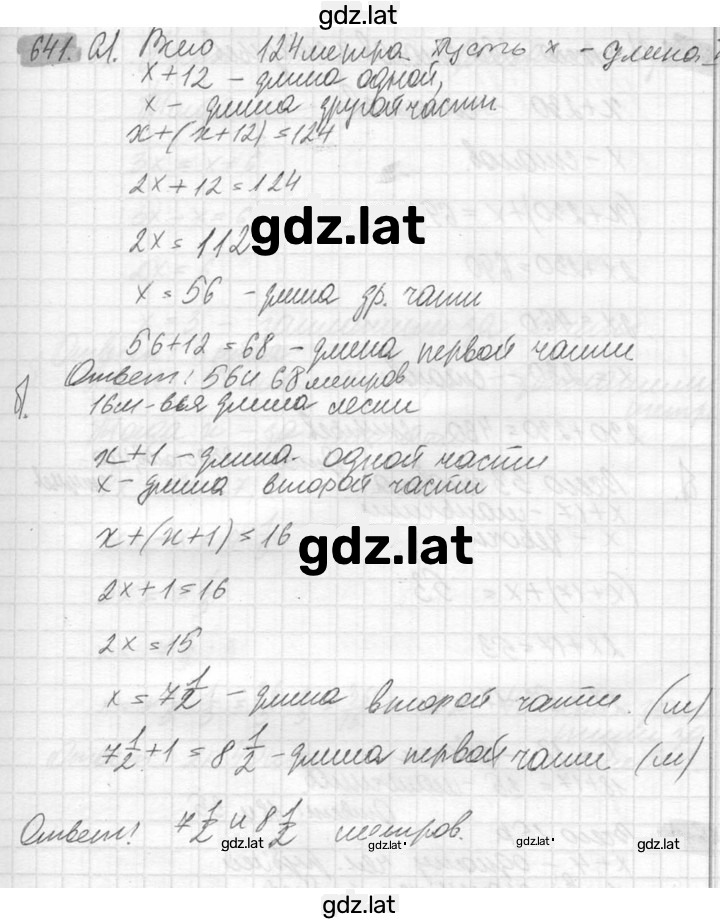 gdz.lat
641. а). Всего 124 метра. Пусть x - длина
x+12 - длина одной,
x - длина другой части
x+(x+12)=124
2x+12=124
2x=112
gdz.lat
x=56 - длина др. части
56+12=68 - длина первой части
Ответ: 56 и 68 метров
б). 16м - вся длина лески
x+1 - длина одной части
x - длина второй части
x+(x+1)=16
gdz.lat
2x+1=16
2x=15
x=7 1/2 - длина второй части. (м)
7 1/2+1=8 1/2 - длина первой части (м)
Ответ: 7 1/2 и 8 1/2 метров.
gdz.lat gdz.lat gdz.lat gdz.lat
gdz.lat